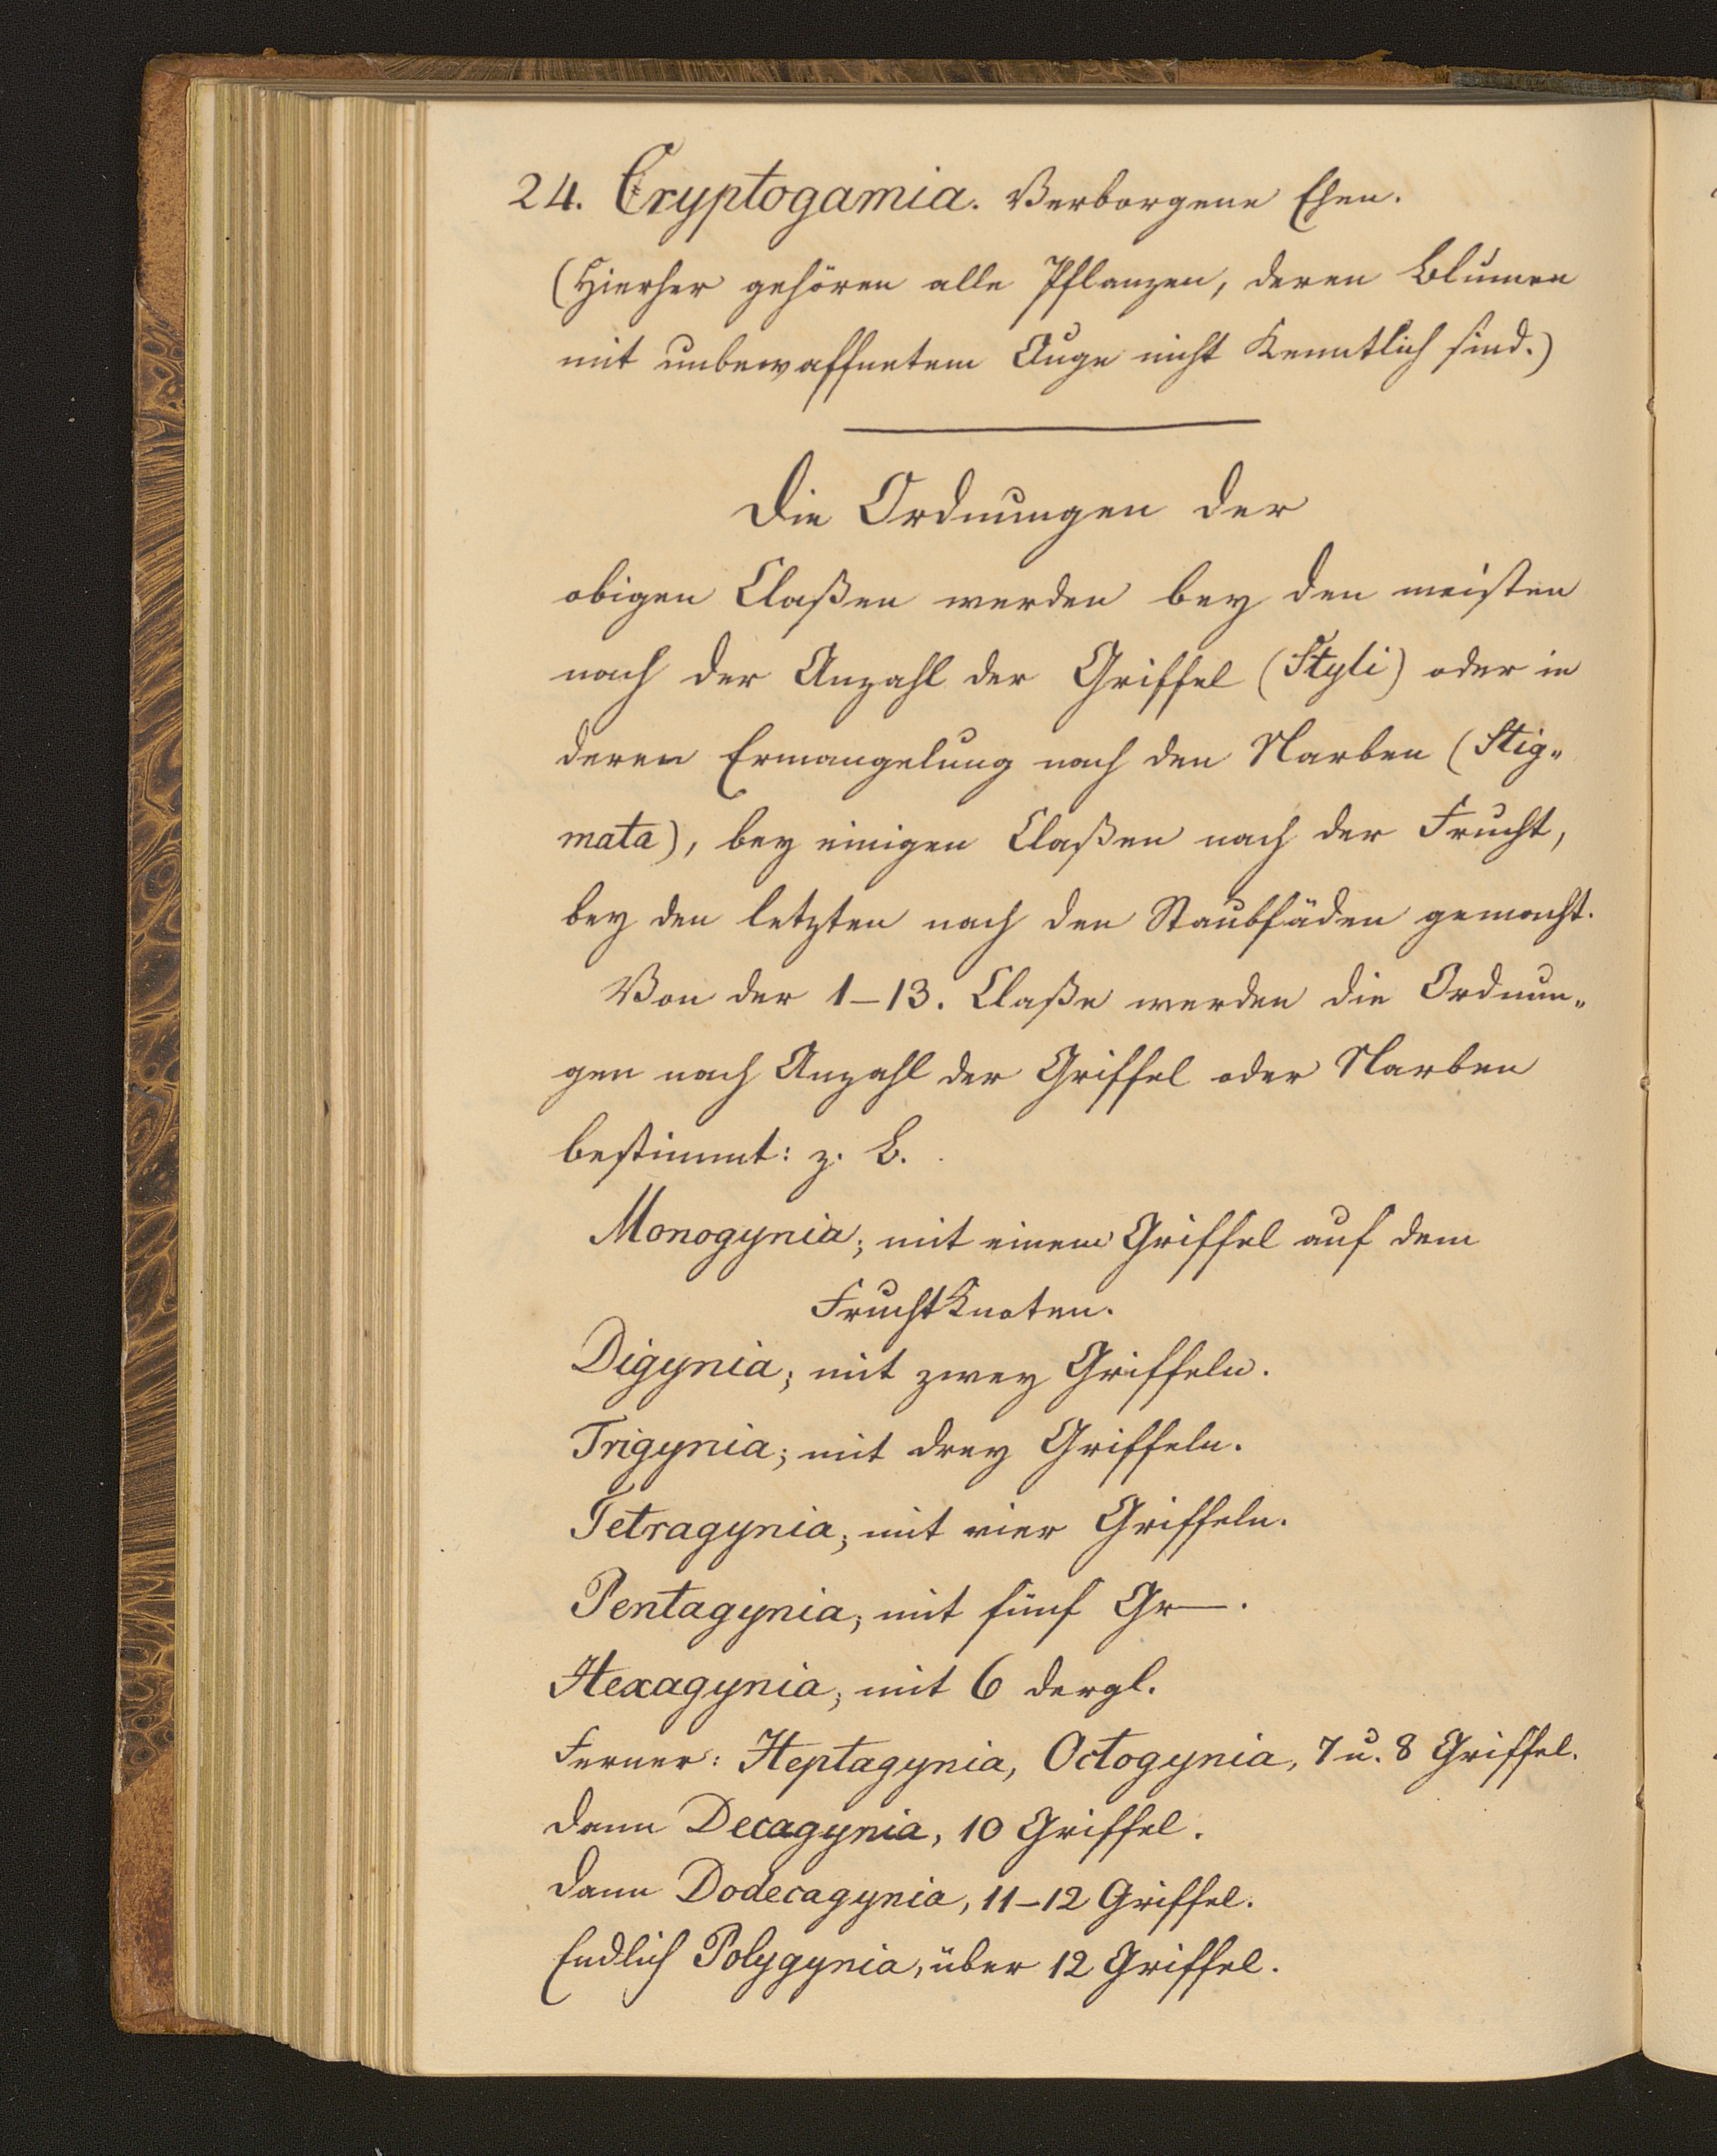 24. Cryptogamia. Verborgene Ehen.
(Hierher gehören alle Pflanzen, deren Blumen
mit unbewaffnetem Auge nicht kenntlich sind.)
Die Ordnungen der
obigen Claßen werden bey den meisten
nach der Anzahl der Griffel (Styli) oder in
deren Ermangelung nach den Narben (Stig„
mata), bey einigen Claßen nach der Frucht,
bey den letzten nach den Staubfäden gemacht.
Von der 1–13. Claße werden die Ordnun„
gen nach Anzahl der Griffel oder Narben
bestimmt: z. B.
Monogynia; mit einem Griffel auf dem
Fruchtknoten.
Digynia; mit zwey Griffeln.
Trigynia; mit drey Griffeln.
Tetragynia; mit vier Griffeln.
Pentagynia; mit fünf Gr—.
Hexagynia; mit 6 dergl.
Ferner: Heptagynia, Octogynia, 7 u. 8 Griffel.
dann Decagynia, 10 Griffel.
dann Dodecagynia, 11–12 Griffel.
Endlich Polygynia, über 12 Griffel.